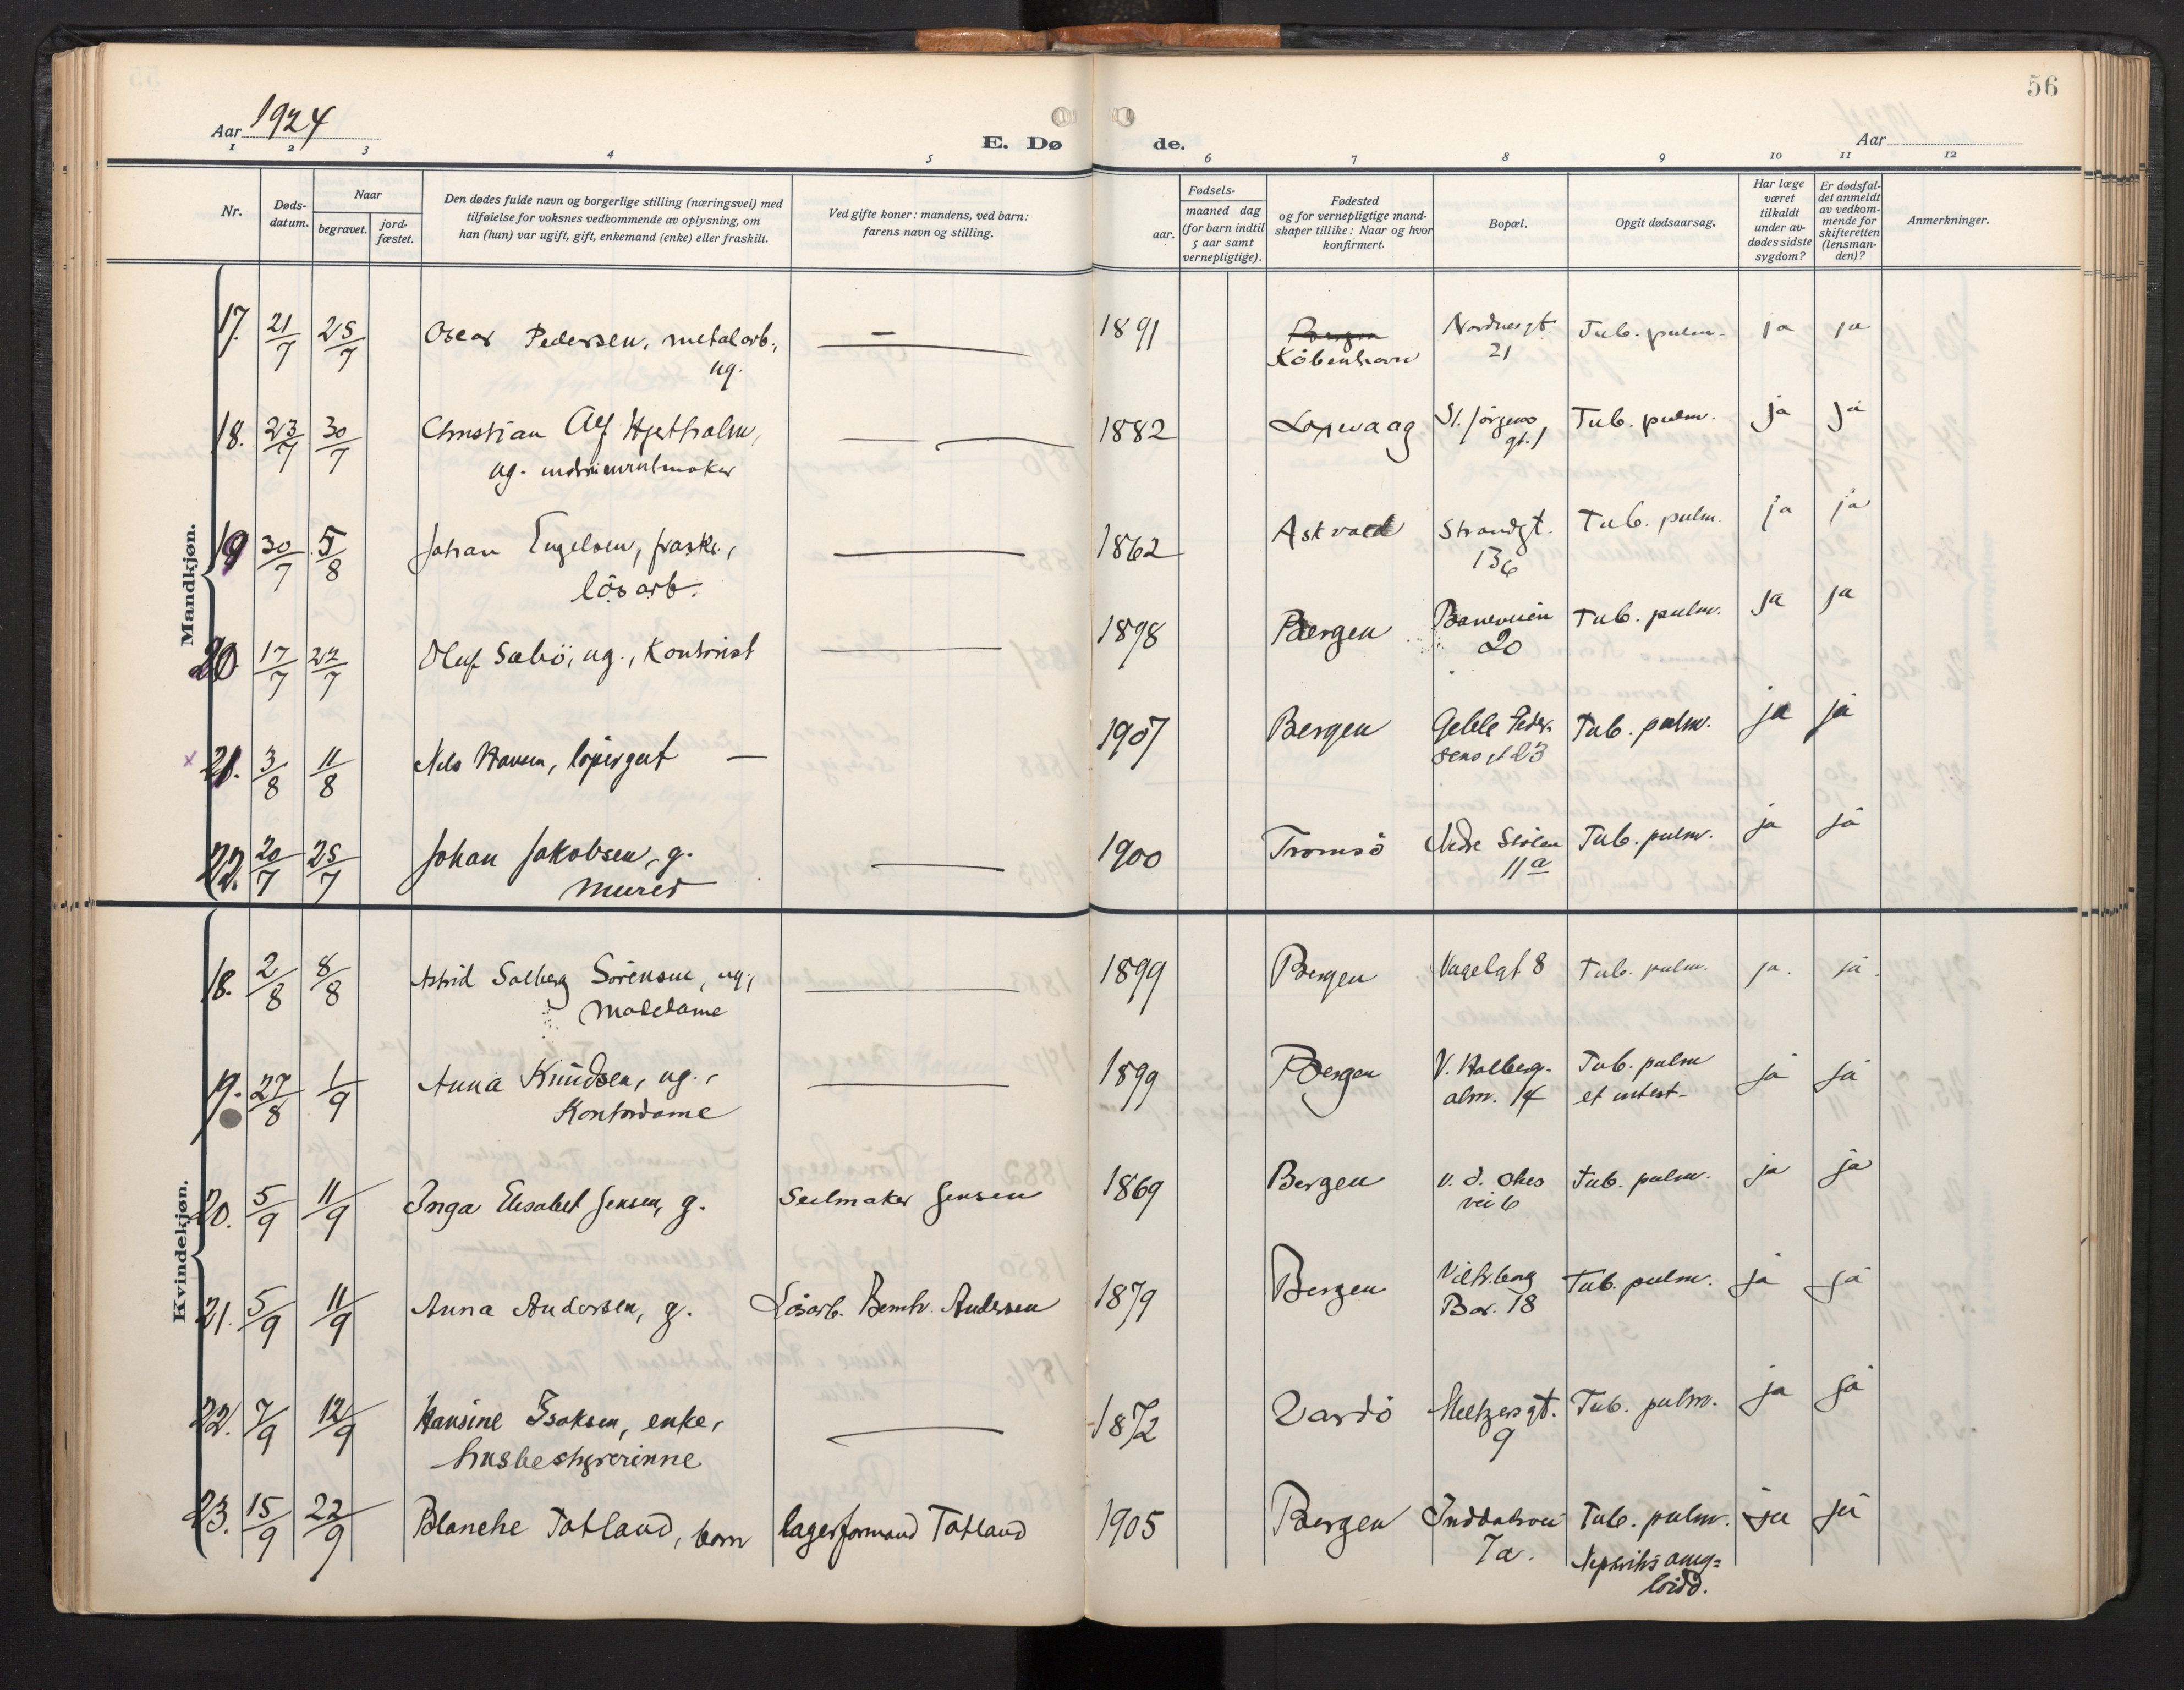 56
Aar 1924
E. Dø de.
Aar
1 2 3 4 5 6 7 8 9 10 11 12
Nr.
Døds-
datum.
Naar
begravet.
jord-
fæstet.
Den dødes fulde navn og borgerlige stilling (næringsvei) med
tilføielse for voksnes vedkommende av oplysning, om
han (hun) var ugift, gift, enkemand (enke) eller fraskilt.
Ved gifte koner: mandens, ved barn:
farens navn og stilling.
Fødsels-
aar.
maaned dag
(for barn indtil
5 aar samt
vernepligtige).
Fødested
og for vernepligtige mand-
skaper tillike: Naar og hvor
konfirmert.
Bopæl.
Opgit dødsaarsag.
Har læge
været
tilkaldt
under av-
dødes sidste
sygdom?
Er dødsfal-
det anmeldt
av vedkom-
mende for
skifteretten
(lensman-
den)?
Anmerkninger.
Mandkjøn.
17. 21/7 25/7 Oscar Pedersen, metalarb., — 1891 Bergen Nordnesgt. Tub. pulm. ja ja
ug. København 21
18. 23/7 30/7 Christian Alf Hjertholm, 1882 St. Jørgens Tub. pulm. ja ja
ug. instrumentmaker gt. 1
19 30/7 5/8 Johan Engelsen, frask., 1862 Askvoll Strandgt. Tub. pulm. ja ja
løsarb. 136
20. 17/7 22/7 Oluf Sæbö, ug., Kontorist 1898 Bergen Baneveien Tub. pulm. ja ja
20
21. 3/8 11/8 Nils Hansen, löpergut — 1907 Bergen Geble Peder- Tub. pulm. ja ja
sens gt 23
22. 20/7 25/7 Johan Jakobsen, g. 1900 Tromsö Nedre Stölen Tub. pulm. ja ja
murer 11a
Kvindekjøn.
18. 2/8 8/8 Astrid Solberg Sörensen, ug., 1899 Bergen Vagelgt 8 Tub. pulm. ja. ja.
Modedame
19. 27/8 1/9 Anna Knudsen, ug., 1899 Bergen V. Holberg- Tub. pulm ja ja
Kontordame alm. 14 et intest-
20. 5/9 11/9 Inga Elisabet Jensen, g. Seilmaker Jensen 1869 Bergen v. d. Ohes Tub. pulm. ja ja
vei 6
21. 5/9 11/9 Anna Andersen, g. Lösarb. Bernh. Andersen 1879 Bergen Tub. pulm. ja ja
Bar. 18
22. 7/9 12/9 Hansine Isaksen, enke, 1872 Vardö Meltzersgt. Tub. pulm. ja ja
husbestyrerinne 9
23. 15/9 22/9 Blanche Totland, barn lagerformand Totland 1905 Bergen Inddalsvei Tub. pulm. ja ja
7a. Nephritis amy=
loidd.